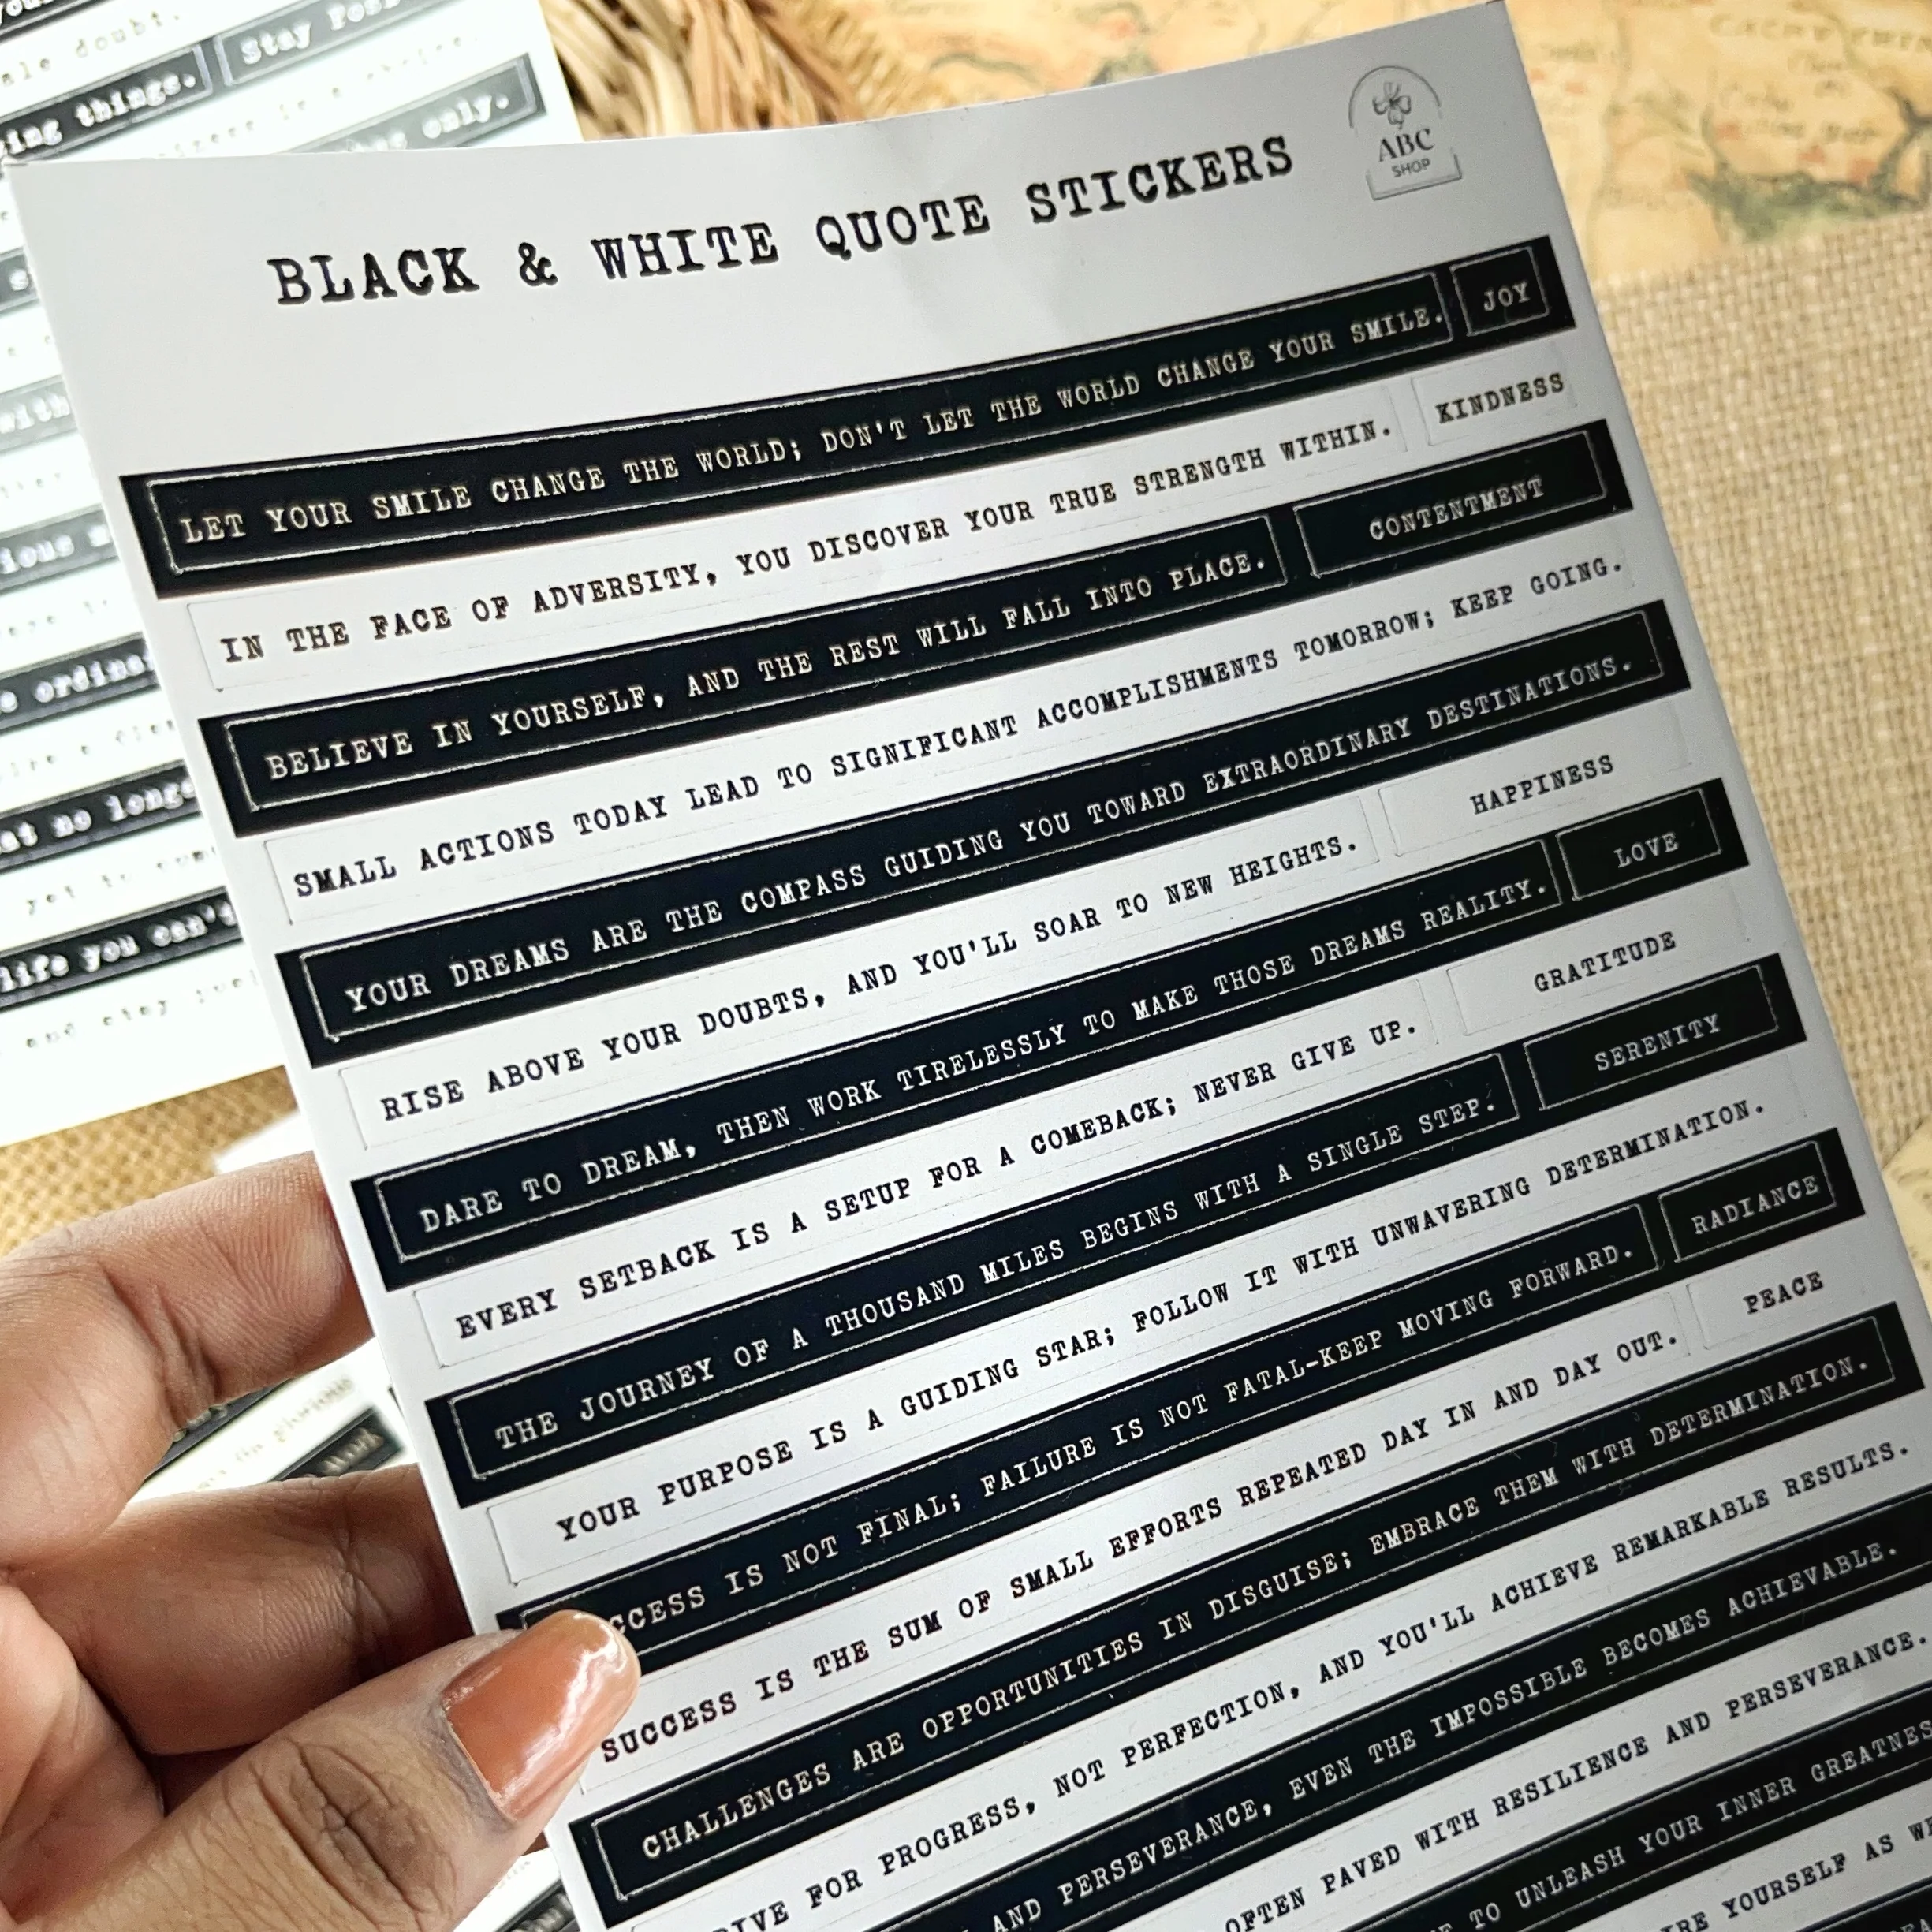 BLACK & WHITE QUOTE STICKERS
ABC
SHOP
LET YOUR SMILE CHANGE THE WORLD; DON'T LET THE WORLD CHANGE YOUR SMILE. JOY
IN THE FACE OF ADVERSITY, YOU DISCOVER YOUR TRUE STRENGTH WITHIN. KINDNESS
BELIEVE IN YOURSELF, AND THE REST WILL FALL INTO PLACE. CONTENTMENT
SMALL ACTIONS TODAY LEAD TO SIGNIFICANT ACCOMPLISHMENTS TOMORROW; KEEP GOING.
YOUR DREAMS ARE THE COMPASS GUIDING YOU TOWARD EXTRAORDINARY DESTINATIONS.
RISE ABOVE YOUR DOUBTS, AND YOU'LL SOAR TO NEW HEIGHTS. HAPPINESS
DARE TO DREAM, THEN WORK TIRELESSLY TO MAKE THOSE DREAMS REALITY. LOVE
EVERY SETBACK IS A SETUP FOR A COMEBACK; NEVER GIVE UP. GRATITUDE
THE JOURNEY OF A THOUSAND MILES BEGINS WITH A SINGLE STEP. SERENITY
YOUR PURPOSE IS A GUIDING STAR; FOLLOW IT WITH UNWAVERING DETERMINATION.
CCESS IS NOT FINAL; FAILURE IS NOT FATAL-KEEP MOVING FORWARD. RADIANCE
SUCCESS IS THE SUM OF SMALL EFFORTS REPEATED DAY IN AND DAY OUT. PEACE
CHALLENGES ARE OPPORTUNITIES IN DISGUISE; EMBRACE THEM WITH DETERMINATION.
FOR PROGRESS, NOT PERFECTION, AND YOU'LL ACHIEVE REMARKABLE RESULTS.
AND PERSEVERANCE, EVEN THE IMPOSSIBLE BECOMES ACHIEVABLE.
OFTEN PAVED WITH RESILIENCE AND PERSEVERANCE.
TO UNLEASH YOUR INNER GREATNES
YOURSELF AS
ale doubt.
ing things. Stay
only.
with
ordinar
at no longe
yet to
life you can't
and stay
glorious
work